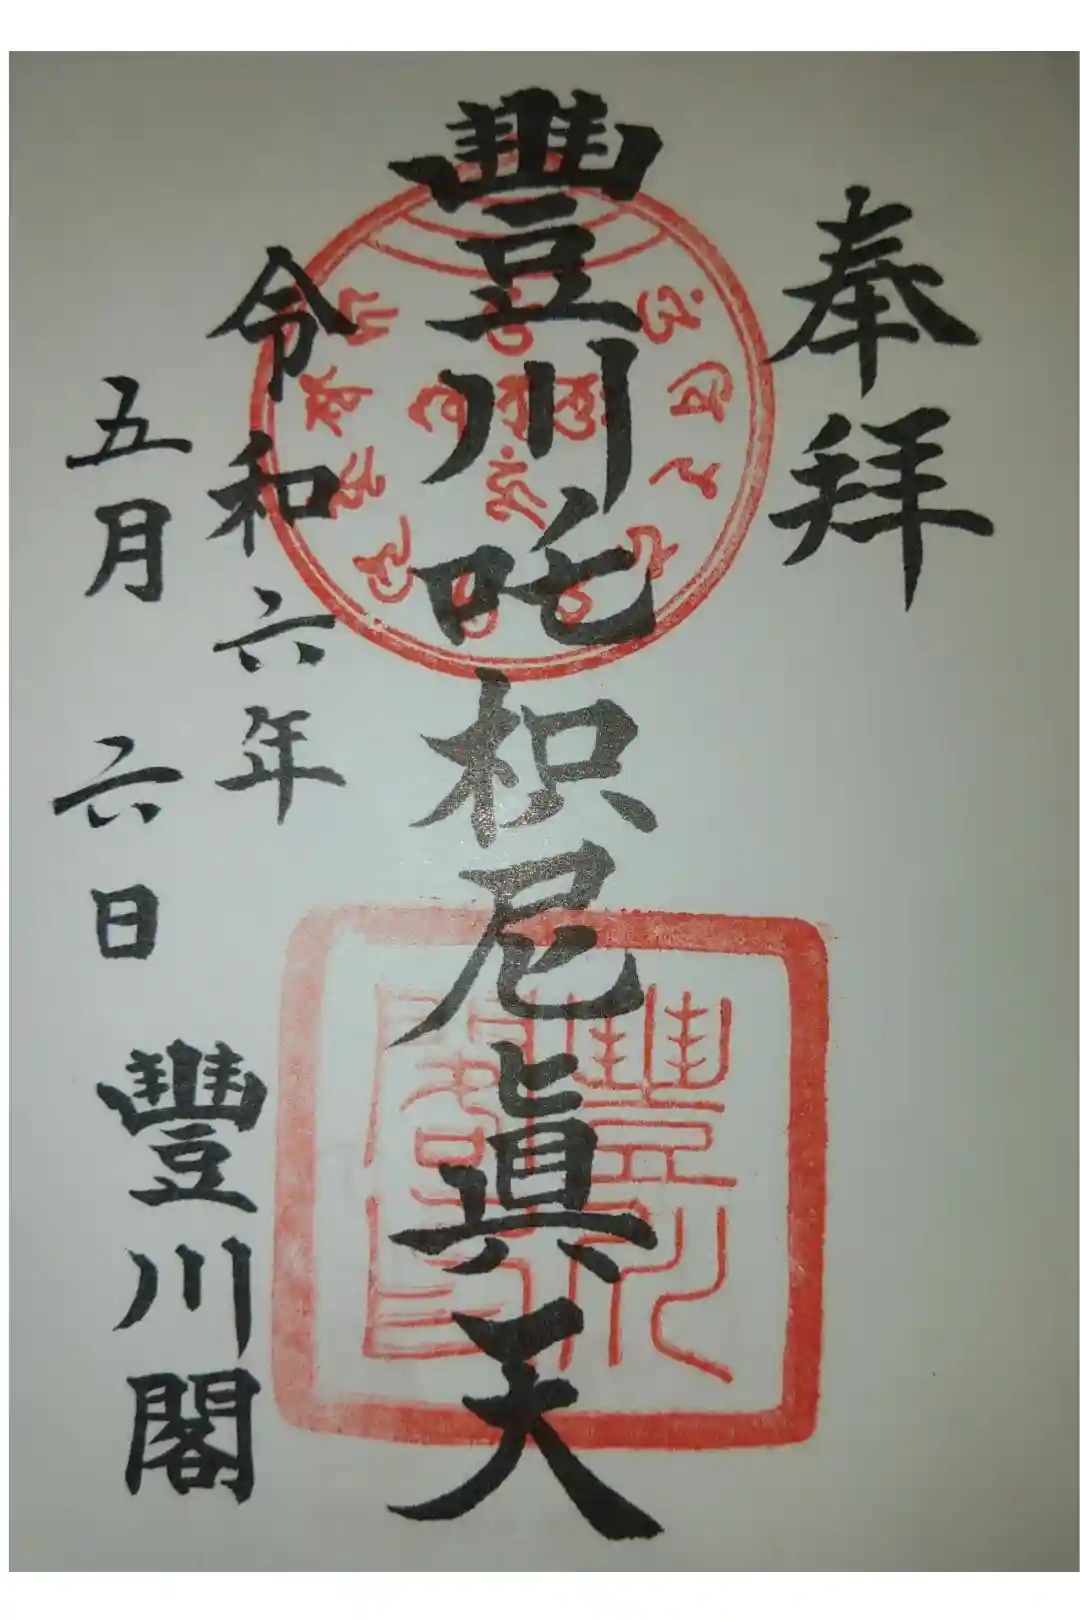 奉拜
豐川吒枳尼眞天
令和六年
五月六日
豐川閣
豐川
閣印